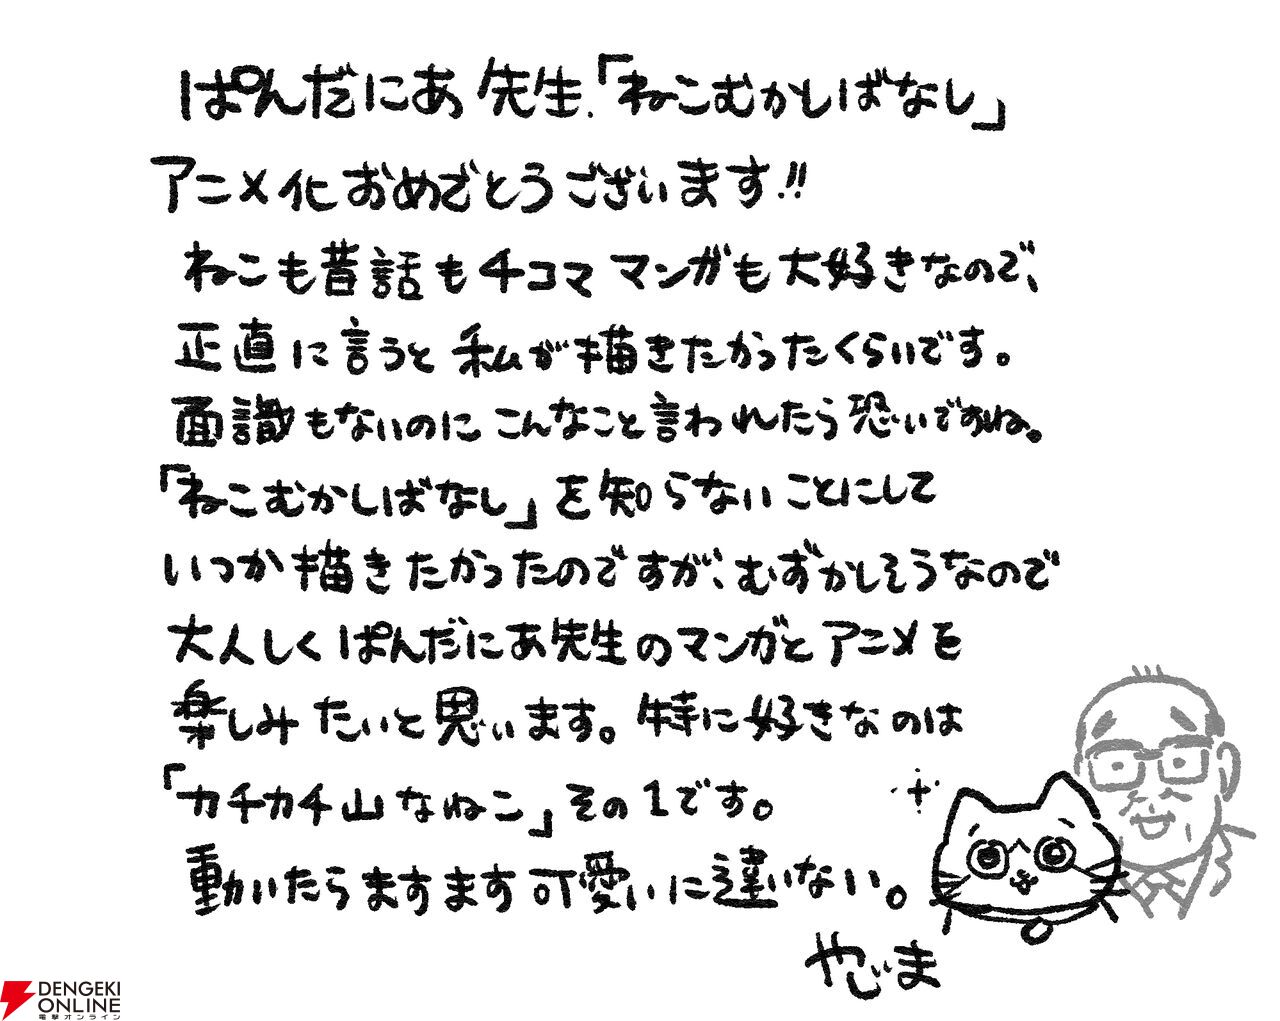 ぱんだにあ先生、「ねこむかしばなし」
アニメ化おめでとうございます!!
ねこも昔話も4コママンガも大好きなので、
正直に言うと私が描きたかったくらいです。
面識もないのにこんなこと言われたら恐いですね。
「ねこむかしばなし」を知らないことにして
いつか描きたかったのですが、むずかしそうなので
大人しくぱんだにあ先生のマンガとアニメを
楽しみたいと思います。特に好きなのは
「カチカチ山なねこ」その1です。
動いたらますます可愛いに違いない。
やじま
DENGEKI
ONLINE
電撃オンライン